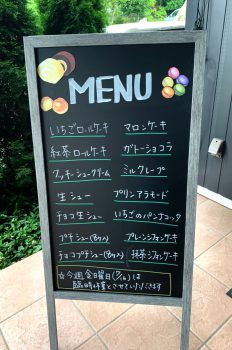 MENU
いちごロールケーキ
マロンケーキ
紅茶ロールケーキ
ガトーショコラ
クッキーシュークリーム
ミルクレープ
生シュー
プリンアラモード
チョコ生シュー
いちごのパンナコッタ
プチシュー(8ヶ入)
プレーンシフォンケーキ
チョコプチシュー(8ヶ入)
抹茶シフォンケーキ
☆今週金曜日は
臨時休業とさせていただきます